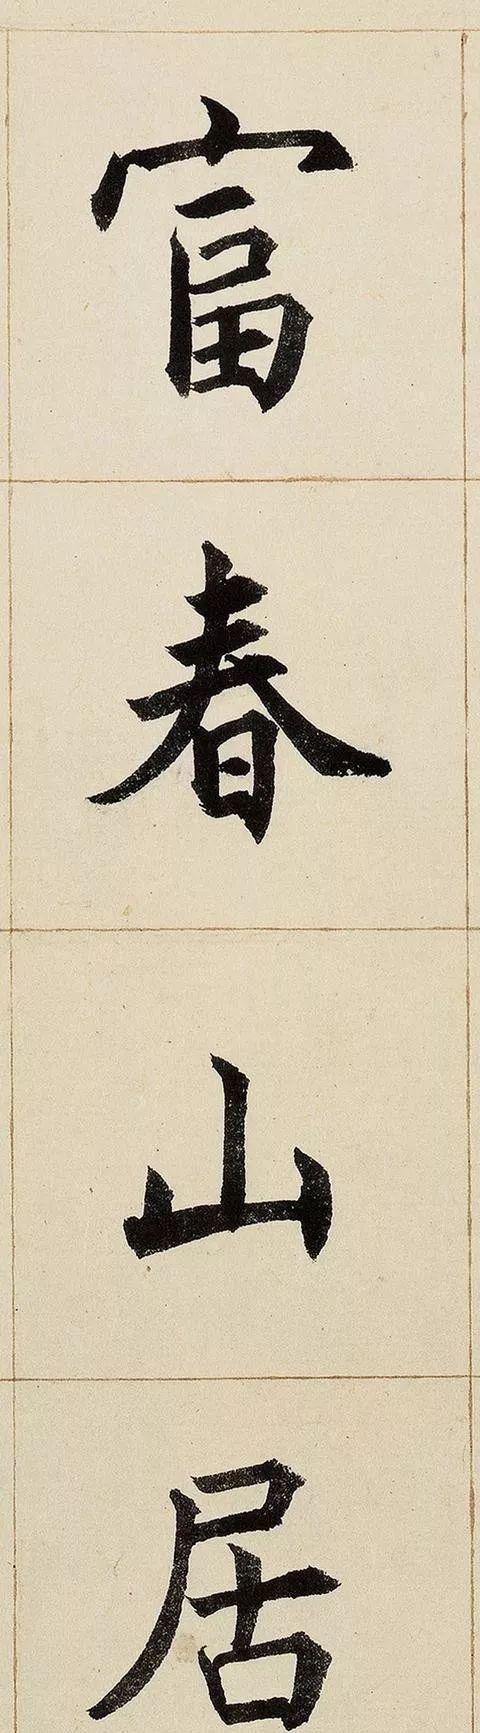 富春山居